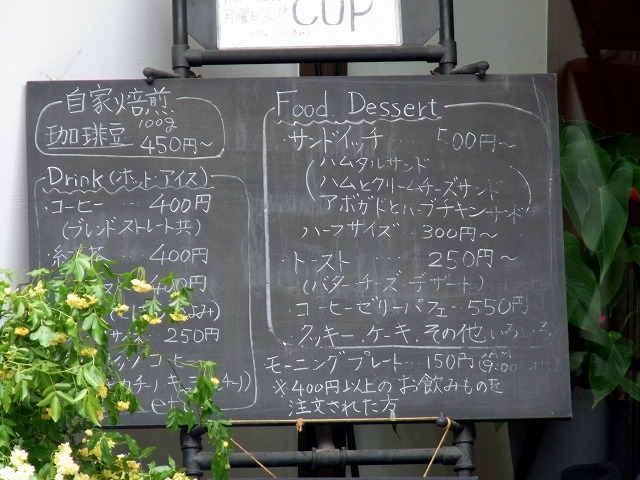 月曜日定休
CUP
自家焙煎
100g
珈琲豆 450円～
Drink(ホット・アイス)
・コーヒー … 400円
(ブレンドストレート共)
400円
400円
250円
コーヒー
etc
Food Dessert
・サンドイッチ … 500円～
(ハムタルサンド
ハムとクリームチーズサンド
アボガドとハーブチキンサンド)
ハーフサイズ … 300円～
・トースト … 250円～
(バター・チーズ・デザート)
・コーヒーゼリーパフェ・550円
・クッキー、ケーキ、その他いろいろ
モーニングプレート … 150円
※400円以上のお飲みものを
注文された方